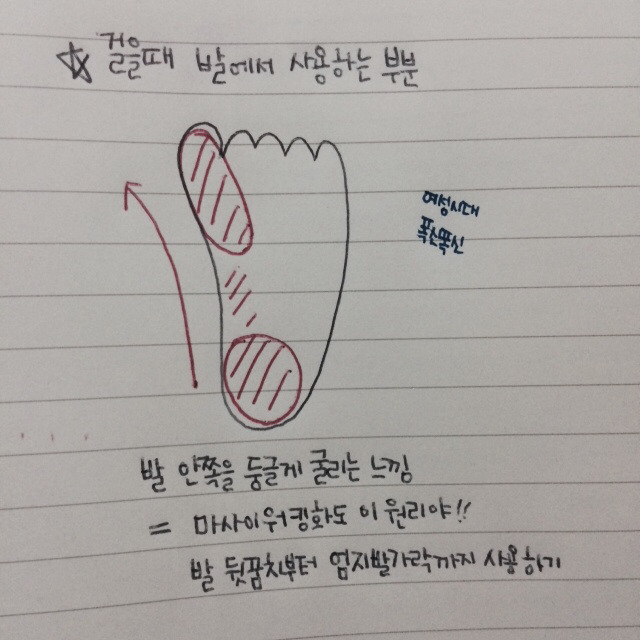 ☆ 걸을때 발에서 사용하는 부분
여성시대
폭신폭신
발 안쪽을 둥글게 굴리는 느낌
= 마사이워킹화도 이 원리야!!
발 뒷꿈치부터 엄지발가락까지 사용하기